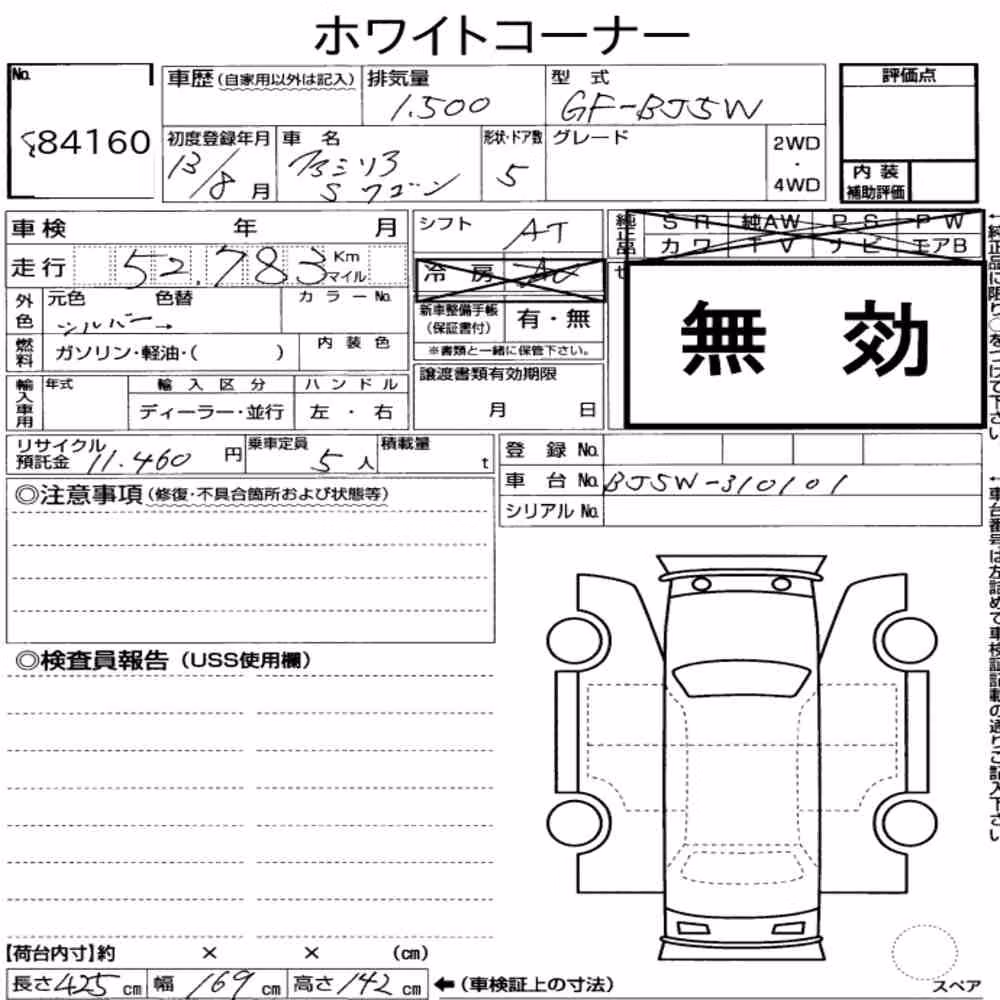 ホワイトコーナー
No. 84160
車歴(自家用以外は記入)
排気量 1.500
型式 GF-BJ5W
評価点
初度登録年月 13/8月
車名 ファミリア Sワゴン
形状・ドア数 5
グレード
2WD・4WD
内装補助評価
車検 年 月
シフト AT
純正品 SR 純AW PS PW
カワ TV ナビ エアB
走行 52,783 Km マイル
冷房 AC
外色 元色 シルバー→ 色替 カラーNo.
新車整備手帳(保証書付) 有・無
※書類と一緒に保管下さい。
無効
燃料 ガソリン・軽油・( ) 内装色
譲渡書類有効期限 月 日
輸入車用 年式 輸入区分 ディーラー・並行 ハンドル 左・右
リサイクル預託金 11.460円
乗車定員 5人
積載量 t
登録No.
車台No. BJ5W-310101
シリアルNo.
◎注意事項(修復・不具合箇所および状態等)
◎検査員報告(USS使用欄)
←純正品に限り○をつけて下さい
←車台番号は左詰めで車検証記載の通りご記入下さい
【荷台内寸】約 × × (cm)
長さ425cm 幅169cm 高さ142cm ←(車検証上の寸法)
スペア